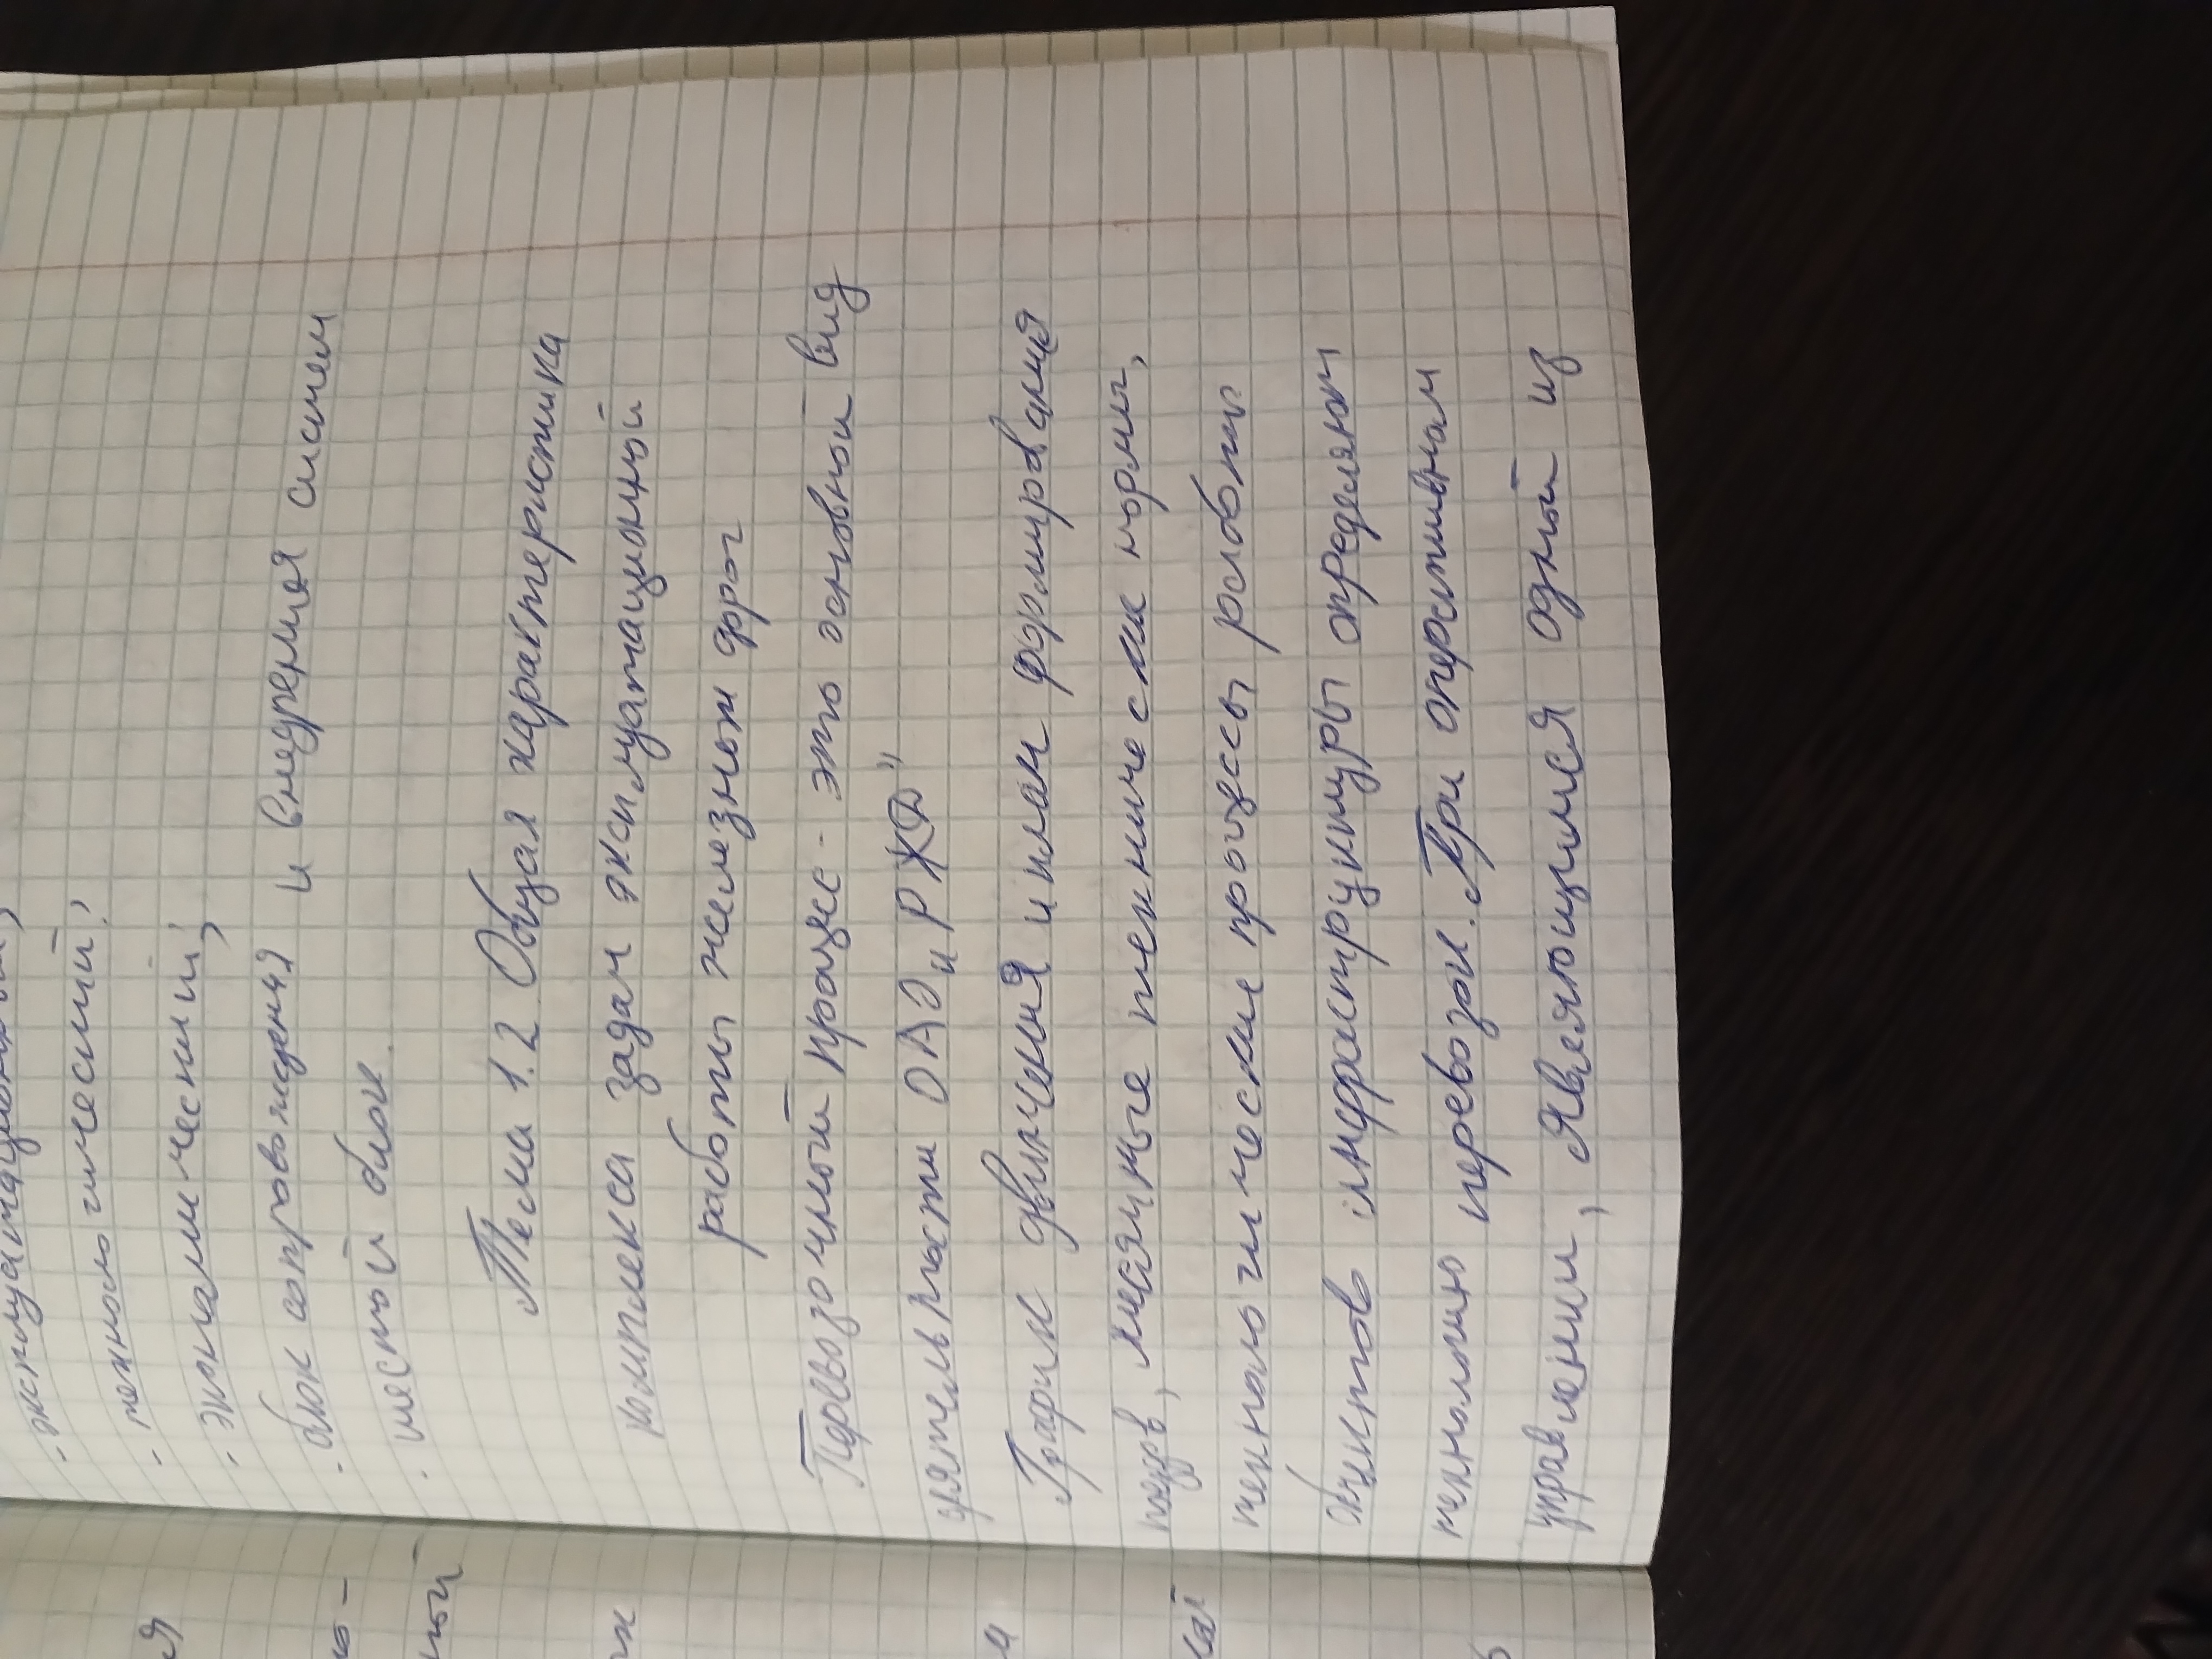 · эксплуатационный,
· технологический;
· экономический;
· блок сопровождения и внедрения систем
· шестой блок.
Тема 1.2 Общая характеристика
комплекса задач эксплуатационной
работы железных дорог
Перевозочный процесс - это основной вид
деятельности ОАО „РЖД"
График движения и план формирования
поездов, месячные технические нормы,
технологические процессы работы
объектов инфраструктуры определяют
технологию перевозок. При оперативном
управлении, являющимся одной из